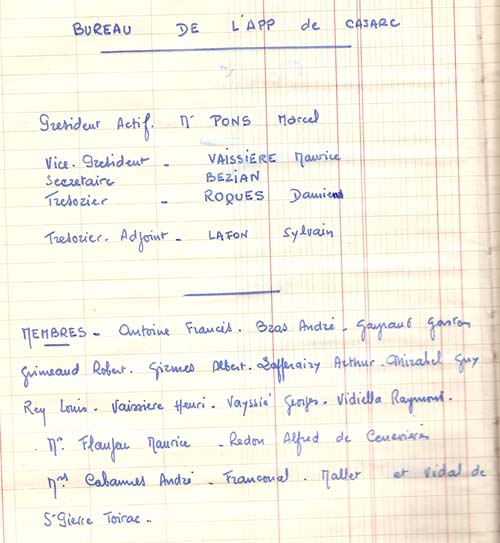 BUREAU DE L'APP de CAJARC
President Actif. Mr PONS Marcel
Vice. President - VAISSIÈRE Maurice
Secretaire BEZIAN
Tresorier - ROQUES Damiens
Tresorier. Adjoint - LAFON Sylvain
MEMBRES - Antoine Francis. Bras André. Gayraud Gaston
Grimeaud Robert. Gizmes Albert. Lafferaizy Arthur. Mirabel Guy
Rey Louis. Vaissiere Henri. Vayssié Georges. Vidiella Raymond.
. Mr. Flaujac Maurice - Redon Alfred de Cenevières
Mrs Cabannes André. Franconal. Mallet et Vidal de
St Pierre Toirac.